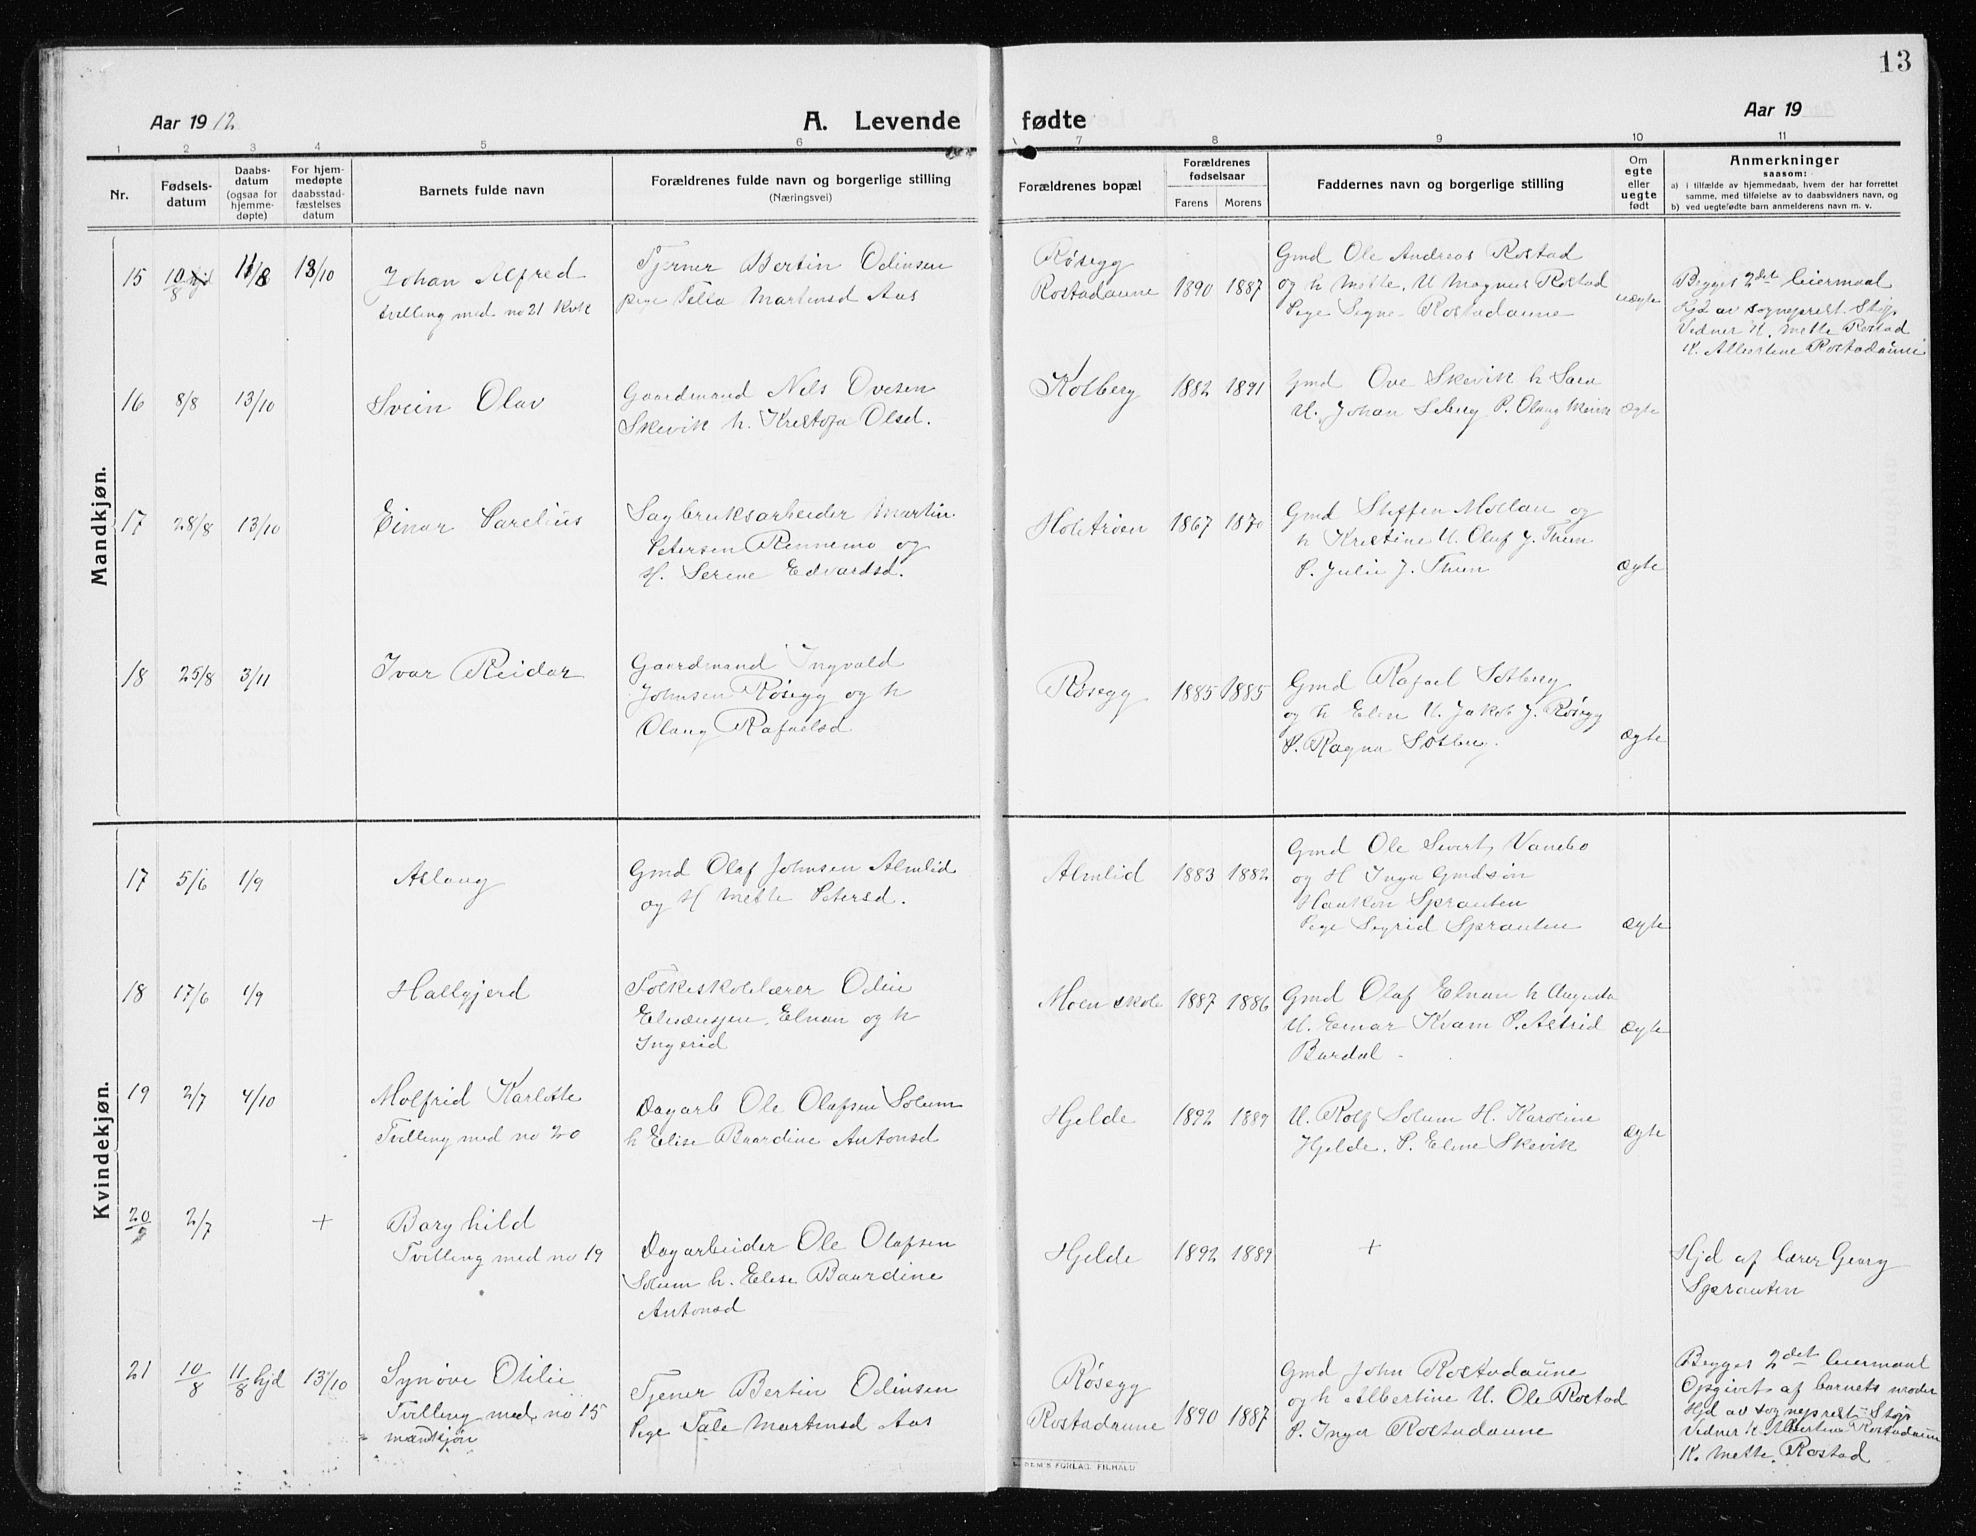 13
Aar 1912
A. Levende fødte
Aar 19
1 2 3 4 5 6 7 8 9 10 11
Nr.
Fødsels-
datum
Daabs-
datum
(ogsaa for
hjemme-
døpte)
For hjem-
medøpte
daabsstad-
fæstelses
datum
Barnets fulde navn
Forældrenes fulde navn og borgerlige stilling
(Næringsvei)
Forældrenes bopæl
Forældrenes
fødselsaar
Farens Morens
Faddernes navn og borgerlige stilling
Om
egte
eller
uegte
født
Anmerkninger
saasom:
a) i tilfælde av hjemmedaab, hvem der har forrettet
samme, med tilføielse av to daabsvidners navn, og
b) ved uegtefødte barn anmelderens navn m. v.
Mandkjøn.
15 10/8 11/8 13/10
Johan Alfred
tvilling med no 21 Kvk
Tjener Bertin Odinsen
pige Martinsd Aas
Røsegg
Rostadaune
1890 1887
Gmd Ole Andreas Rostad
og h Mette. U Magnus Rostad
Pige Signe Rostadaune
uægte
Begges 2det leiermaal
Hjd av sogneprest Støp
Vidner K. Mette Rostad
K. Albertine Rostadaune
16 8/8 13/10
Svein Olav
Gaardmand Nils Ovesen
Skevik h. Kristofa Olsd.
Kolberg
1882 1891
Gmd Ove Skevik h Sara
U. Johan P. Olaug
ægte
17 28/8 13/10
Einar Parelius
Sagbruksarbeider Martin
Petersen Rennemo og
H. Serine Edvardsd.
Holstrøen
1867 1870
Gmd Steffen Moelan og
h Kristine U. Olaf J. Thun
P. Julie J. Thun
ægte
18 25/8 3/11
Ivar Reidar
Gaardmand Ingvald
Johnsen Røsegg og h
Olaug Rafaelsd
Røsegg
1885 1885
Gmd Rafael Solberg
og h Elen U. Jakob J. Røsegg
P. Ragna Solberg.
ægte
Kvindekjøn.
17 5/6 1/9
Aslaug
Gmd Olaf Johnsen Almlid
og H Mette Petersd.
Almlid
1883 1882
Gmd Ole Sivert Vanebo
og H Inga Gmdsøn
Haakon Sprauten
Pige Sigrid Sprauten
ægte
18 17/6 1/9
Hallgjerd
Folkeskolelærer Odin
Elnan og h
Ingerid
Moen skole
1887 1886
Gmd Olaf Elnan h Augusta
U. Einar Kvam P. Astrid
Bardal
ægte
19 2/7 4/10
Molfrid Karlotte
Tvilling med no 20
Dagarb Ole Olafsen Solum
h Elise Baardine Antonsd
Hjelde
1892 1889
U. Rolf Solum H. Karoline
Hjelde. P. Elene Skevik
ægte
20 2/7 +
Borghild
Tvilling med no 19
Dagarbeider Ole Olafsen
Solum h. Elise Baardine
Antonsd
Hjelde
1892 1889
+
Hjd af lærer Georg
Sprauten
21 10/8 11/8 hjd 13/10
Synøve Otilie
Tvilling med no 15
mankjøn
Tjener Bertin Odinsen
Pige Tale Martinsd Aas
Røsegg
Rostadaune
1890 1887
Gmd John Rostadaune
og h Albertine U. Ole Rostad
P. Inga Rostadaune
Begges 2det leiermaal
Opgivet af barnets moder
Hjd av sogneprest Støp
Vidner K Albertine Rostadaune
K. Mette Rostad